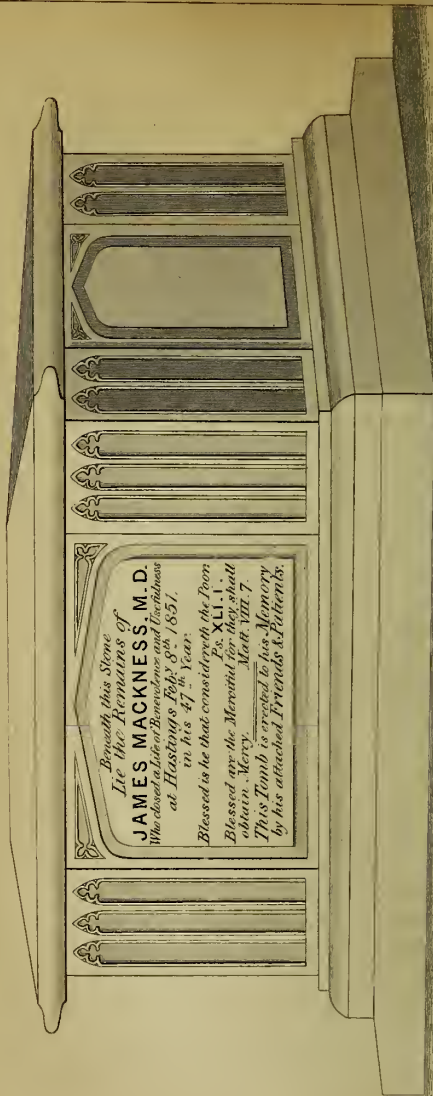 Beneath this Stone
Lie the Remains of
JAMES MACKNESS, M.D.
Who closed a Life of Benevolence and Usefulness
at Hastings Feby. 8th 1851.
in his 47th Year.
Blessed is he that considereth the Poor:
Ps. XLI.1.
Blessed are the Merciful for they shall
obtain Mercy. Matt. VIII. 7.
This Tomb is erected to his Memory
by his attached Friends & Patients.